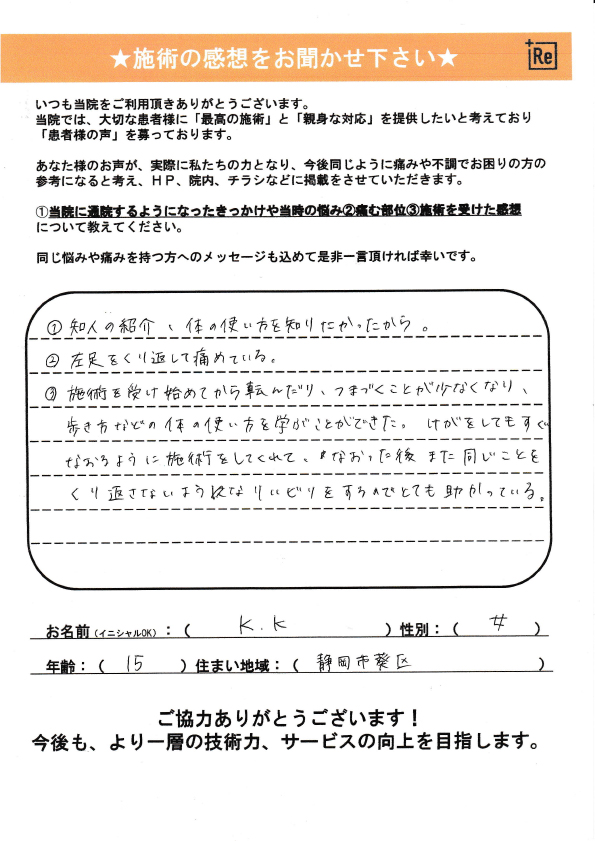 ★施術の感想をお聞かせ下さい★
+Re
いつも当院をご利用頂きありがとうございます。
当院では、大切な患者様に「最高の施術」と「親身な対応」を提供したいと考えており
「患者様の声」を募っております。
あなた様のお声が、実際に私たちの力となり、今後同じように痛みや不調でお困りの方の
参考になると考え、HP、院内、チラシなどに掲載をさせていただきます。
①当院に通院するようになったきっかけや当時の悩み②痛む部位③施術を受けた感想
について教えてください。
同じ悩みや痛みを持つ方へのメッセージも込めて是非一言頂ければ幸いです。
① 知人の紹介、体の使い方を知りたかったから。
② 左足をくり返して痛めている。
③ 施術を受け始めてから転んだり、つまづくことが少なくなり、
歩き方などの体の使い方を学ぶことができた。けがをしてもすぐ
なおるように施術をしてくれて、なおった後また同じことを
くり返さないようなリハビリをするのでとても助かっている。
お名前(イニシャルOK):( K.K )性別:( 女 )
年齢:( 15 )住まい地域:( 静岡市葵区 )
ご協力ありがとうございます!
今後も、より一層の技術力、サービスの向上を目指します。